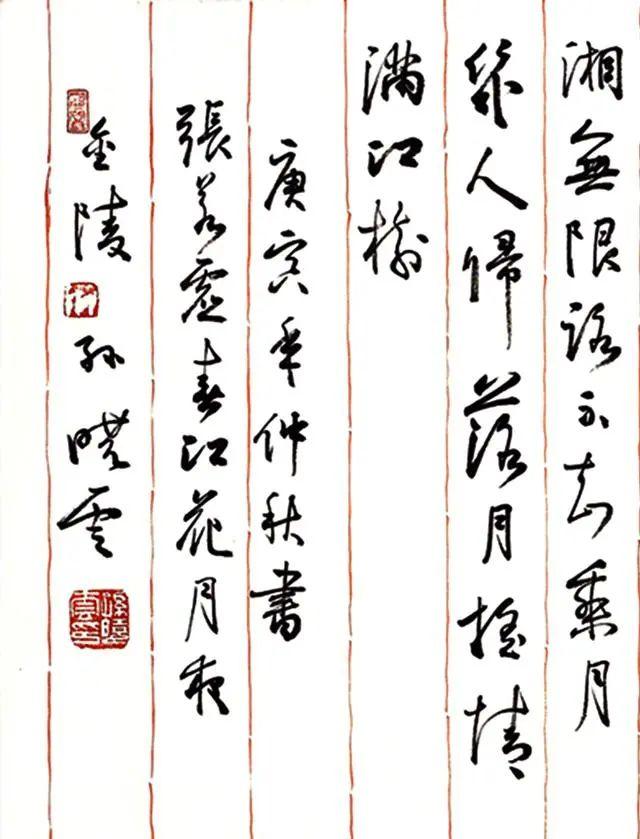 湘無限路不知乘月
幾人歸落月搖情
滿江樹
庚寅年仲秋書
張若虛春江花月夜
金陵孫曉雲
孫曉雲印